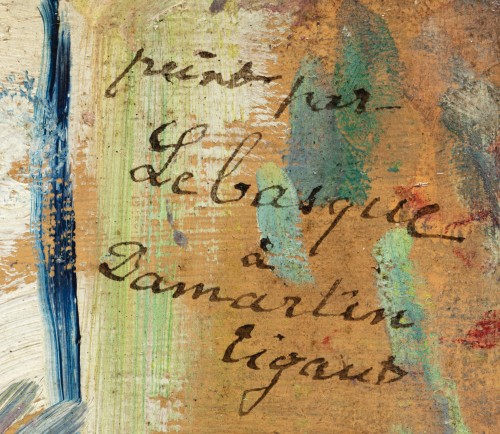 peint par
Lebasque
à
Damartin
Tigaux